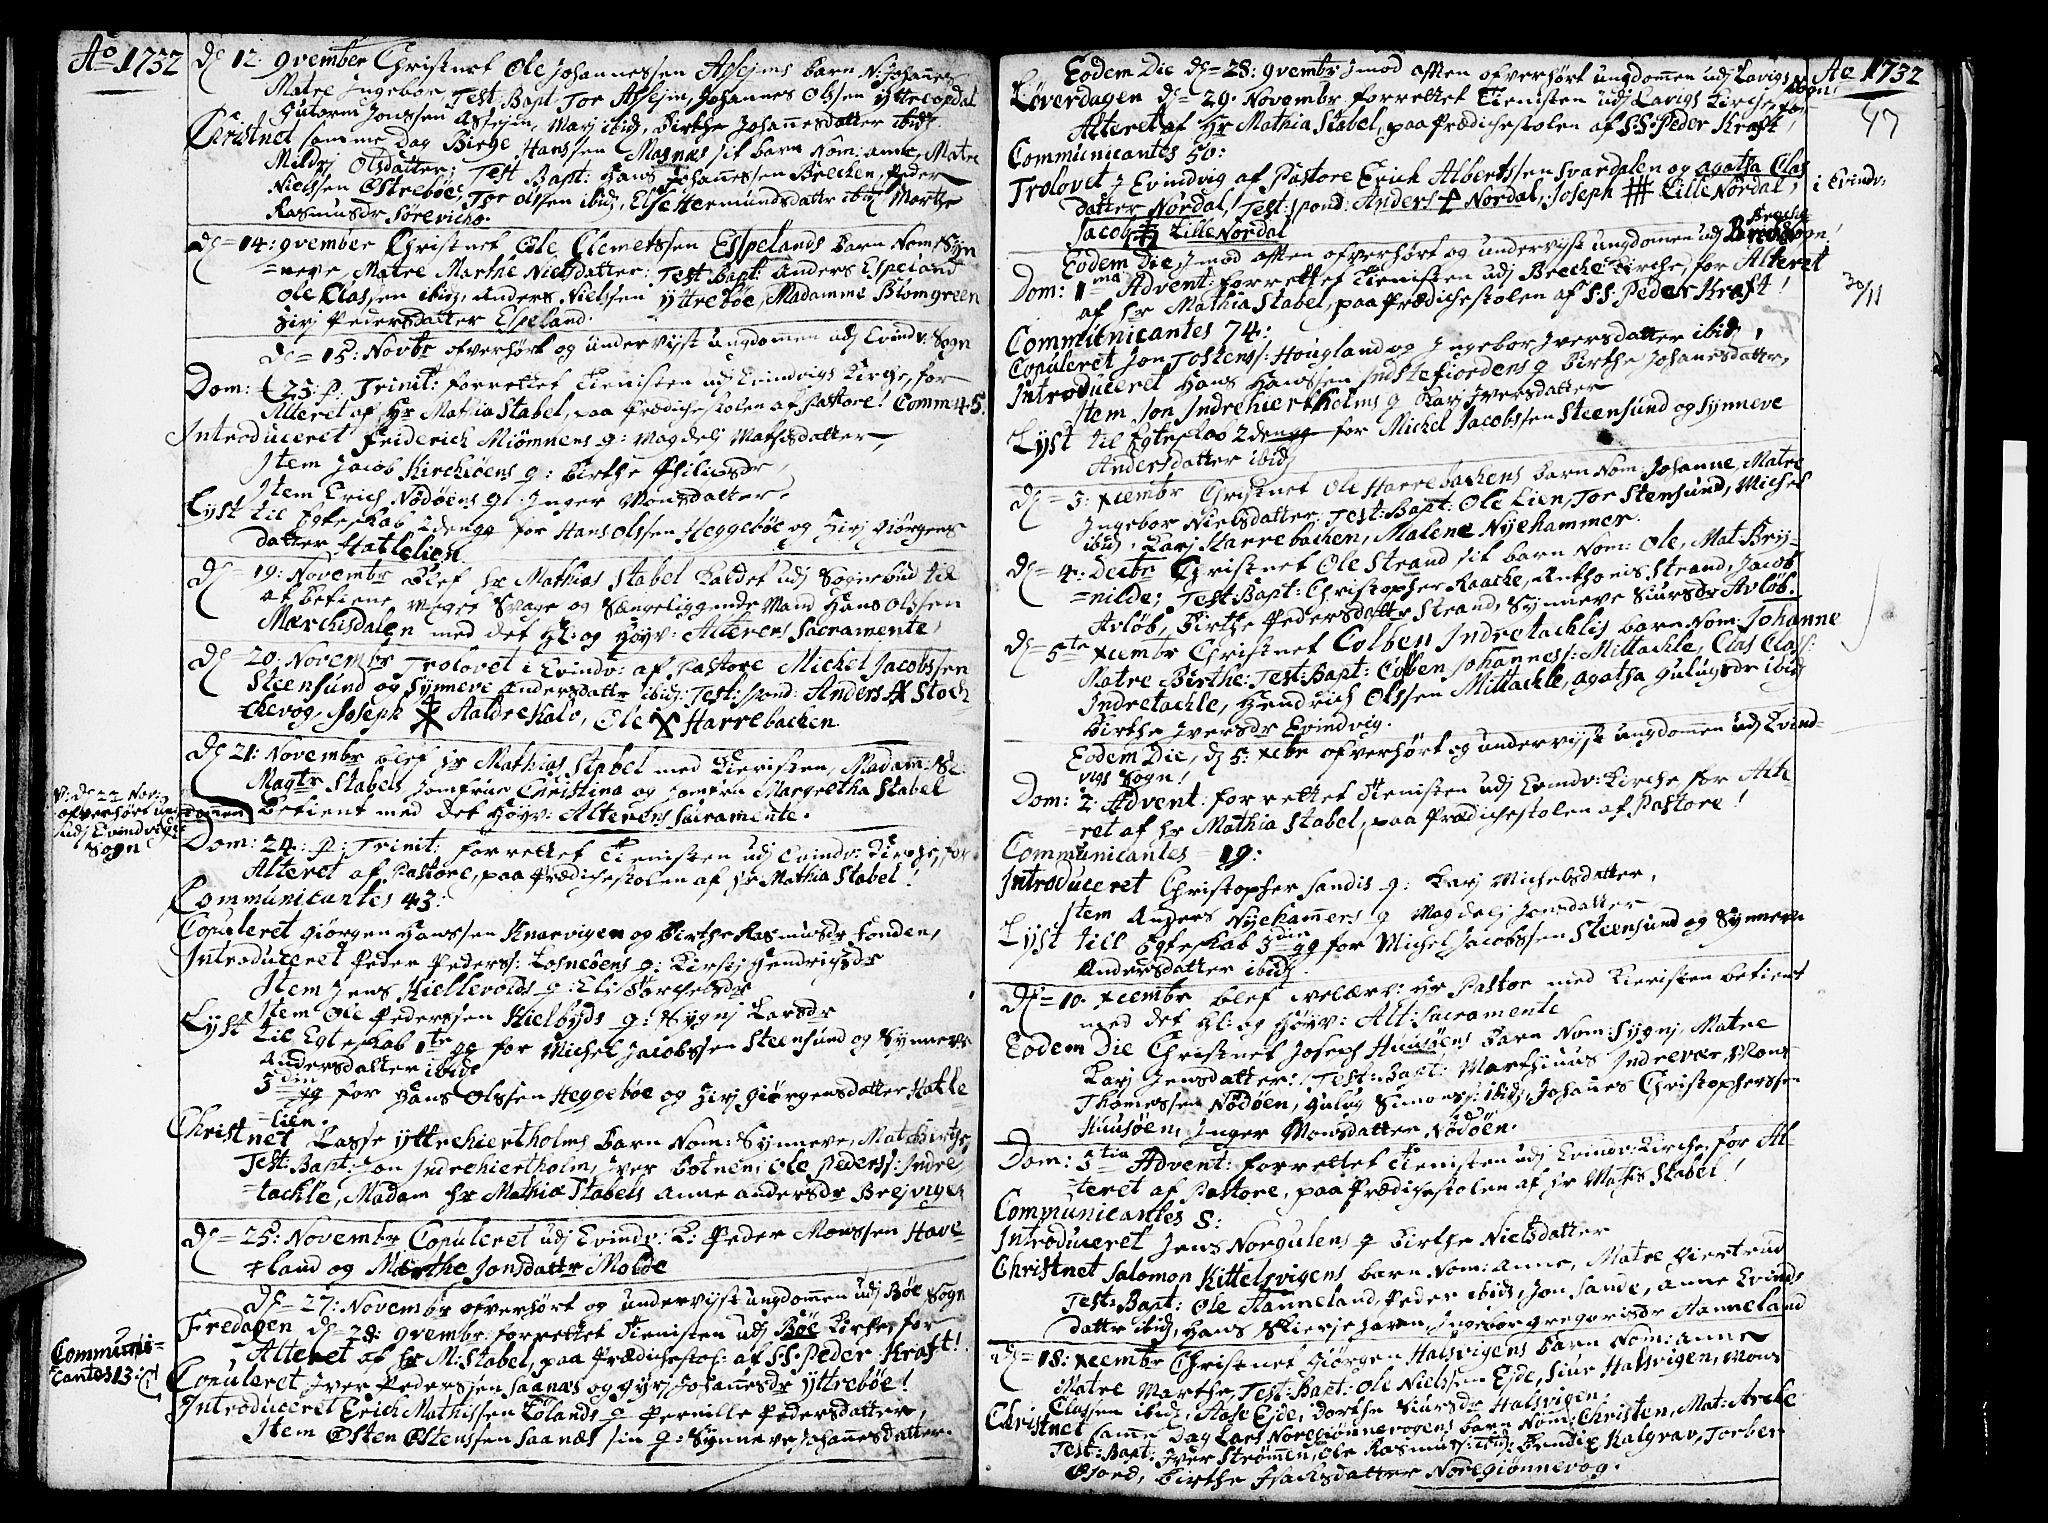 Ao 1732
d 12: 9vember Christnet Ole Johannessen Asseims barn N: Johannes
Matre Ingebor Test: Bapt Tor Assejm, Johannes Olssen Yttreopdal
Gutorm Jonssen Assejm, Marj ibid, Birthe Johanesdatter ibid.
Christnet samme Dag Birge Hanssen Masnæs sit barn Nom: anne, Matre
Mildrj Olsdatter; Test: Bapt: Hans Johanessen Brechen, Peder
Nielssen Østrebøe, Tor olssen ibid, Else Hermundsdatter ibid Marthe
Rasmusdr Sørevicho.
d = 14: 9vember Christnet Ole Clemetssen Esspelands barn Nom: Syn
=neve, Matre Marthe Nielsdatter: Test: bapt: anders Espeland
Ole Classen ibid, anders Nielsen Yttrebøe, Madamme Blomgreen
Sirj Pedersdatter Espeland.
de = 15: Novbr ofverhørt og undervijst ungdomen udj Evindv: Sogn
Dom: 23: p. Trinit: forrettet Tienisten udj Evindvigs Kirche, for
Alteret af Hr Mathia Stabel, paa Prædichestolen af Pastore! Comm: 45.
Introduceret Friderich Miømnens q: Magdelj Mathisdatter,
Item Jacob Kirchiøens q: Birthe Philipsdr,
Item Erich Nødøens q: Inger Monsdatter,
Lyst til Egteskab 2den gg for Hans Olssen Heggebøe og Sirj Giørgens
datter Hatlelien
d = 19: Novembr blef hr Mathias Stabel kaldet udj Sognebud til
at betiene meget Svage og Sængeliggende Mand Hans Olssen
Mærchisdalen med det Hl: og Høyv: Alterens Sacramente,
d = 20: Novembr Trolovet i Evindv: af Pastore Michel Jacobssen
Steensund og Synneve Andersdattr ibid: Test: spond: Anders Stoch
=chevog, Joseph Aaldrekalv, Ole Harrebachen
d 21: Novembr blef hr Mathias Stabel med Kieristen, Madam: Sl:
Magtr Stabels Jomfrue Christina og Jomfru Margretha Stabel
Betient med Det Høyv: Alterens Sacramente.
V: d 22 Nov:
ofverhørt ung
domen
udj Evindvigs
Sogn
Dom: 24: p: Trinit: forrettet Tienisten udj Evindv: Kirche, for
Alteret af Pastore, paa Prædichestolen af hr Mathia Stabel!
Communicantes 43:
Copuleret Giørgen Hanssen Knarvigen og Birthe Rasmusdr Fonden,
Introduceret Peder Peders: Losneøens q: Kirstj Hendrichsdr
Item Jens Kiellevolds q: Eli Torchelsdr
Item Ole Pederssen Kielbyds q: Sygnj Larsdr
Lyst til Egteskab 1te gg for Michel Jacobssen Steensund og Synneve
Andersdatter ibid
3die gg for Hans Olssen Heggebøe og Sirj Giørgensdatter Hatle
=lien.
Christnet Lasse Yttrehiertholms Barn Nom: Synneve, Mat: Birthe,
Test: Bapt: Jon Indrehiertholm, Iver Botnen, Ole Peders: Indre
=tackle, Madam hr Mathia Stabels anne andersdr Brejvigen
d = 25: Novembr Copuleret udj Evindv: K: Peder Monssen Have
=land og Marthe Jonsdattr Molde
d = 27: Novembr ofverhørt og undervijst ungdomen udj Bøe Sogn
Fredagen d = 28: 9vembr: forrettet Tienisten udj Bøe Kirche, for
Alteret af hr M: Stabel, paa Prædichestol: af S:S: Peder Kraft!
Communi=
cantes 13:
Copuleret Iver Pederssen Saanæs og Gyri Johanesdr Yttrebøe!
Introduceret Erich Mathissen Tølands q Pernille Pedersdatter,
Item Østen Østenssen Saanæs sin q: Synneve Johanesdatter.
Ao 1732
47
Eodem Die d = 28: 9vembr Imod aften ofverhørt ungdomen udj Lavigs Sogn!
Løverdagen d = 29: Novembr forrettet Tienisten udj Lavigs Kirche, for
Alteret af Hr Mathia Stabel, paa Prædichestolen af S:S: Peder Kraft,
Communicantes 50:
Trolovet J Evindvig af Pastore Erich Albertssen Svardalen og agatha Clas
datter Nordal, Test: spond: Anders Nordal, Joseph Lille Nordal, i Evindv:
Jacob Lille Nordal
Eodem Die Imod aften ofverhørt og undervijst ungdomen udj Breche Sogn!
Dom: 1ma Advent: forrettet Tienisten udj Breche Kirche, for Alteret
30/11
af hr Mathia Stabel, paa Prædichestolen af S:S: Peder Kraft!
Communicantes 74:
Copuleret Jon Tostens: Hougland og Ingebor Iversdatter ibid,
Introduceret Hans Hanssen Indstefiordens q Birthe Johanesdatter,
Item Jon Indrehiertholms q Karj Iversdatter
Lyst til Egteskab 2den gg for Michel Jacobssen Steensund og Synneve
Andersdatter ibid
d = 3: Xcembr Christnet Ole Harrebachens Barn Nom: Johanne, Matre
Ingebor Nielsdatter: Test: Bapt: Ole Lien, Tor Stensund, Michel
ibid, Karj Harrebachen, Malene Nyehammer.
d = 4: Decbr Christnet Ole Strand sit barn Nom: Ole, Mat: Bry=
=nilde; Test: Bapt: Christopher Raache, Anthonis Strand, Jacob
Avløb, Birthe Pedersdattr Strand, Synneve Siursdr Avløb.
d = 5te Xcembr Christnet Colben Indretacklis barn Nom: Johanne
Matre Birthe: Test: Bapt: Colben Johanness: Mittackle, Clas Class:
Indretackle, Hendrich Olssen Mittackle, Agatha Gulugsdr ibid
Birthe Iversdr Evindvig.
Eodem Die, d 5: Xcbr ofverhørt og undervijst ungdomen udj Evind=
vigs Sogn!
Dom: 2: Advent: forrettet Tienisten udj Evindv: Kirche for Alt=
=ret af hr Mathia Stabel, paa Prædichestolen af Pastore!
Communicantes = 19:
Introduceret Christopher Sandis q: Karj Michelsdatter,
Item Anders Nyehamers q Magdelj Jonsdatter
Lyst till Egteskab 3die gg for Michel Jacobssen Steensund og Synneve
Andersdatter ibid.
d = 10: Xcembr blef velærv: hr Pastor med Kieristen betient
med det Hl: og Høyv: Alt: Sacramente
Eodem Die Christnet Joseph Huusøens Barn Nom: Sygnj, Matre
Karj Jensdatter: Test: Bapt: Marthinus Indrevær, Mons
Thomessen Nødøen, Gulug Simons: ibid, Johanes Christopherssen
Huusøen, Inger Monsdatter Nødøen.
Dom: 3tia Advent: forrettet Tienisten udj Evindv: Kirche, for Al=
=teret af Pastore, paa Prædichestolen af hr Mathis Stabel!
Communicantes 8:
Introduceret Jens Norgulens q Birthe Nielsdatter
Christnet Salomon Kittelsvigens barn Nom: anne, Matre Giertrud
Test: Bapt: Ole Hanneland, Peder ibid, Jon Sande, anne Evinds
dattr ibid, Hans Skierjehavn, Ingebor Gregorisdr Hanneland
d = 18: Xcembr Christnet Giørgen Halsvigens Barn Nom: anne
Matre Marthe, Test: Bapt: Ole Nielssen Ejde, Siur Halsvigen, Mons
Classen ibid, Aase Ejde, Dorthe Siursdr Halsvigen.
Christnet samme Dag Lars Noregiønnevogens barn Nom: Christen, Mat: Anke
Test: Bapt: Iver Strømmen, Ole Rasmus: ibid, Bendix Kalgrav, Torber
Birthe Isachsdatter Noregiønnevog.